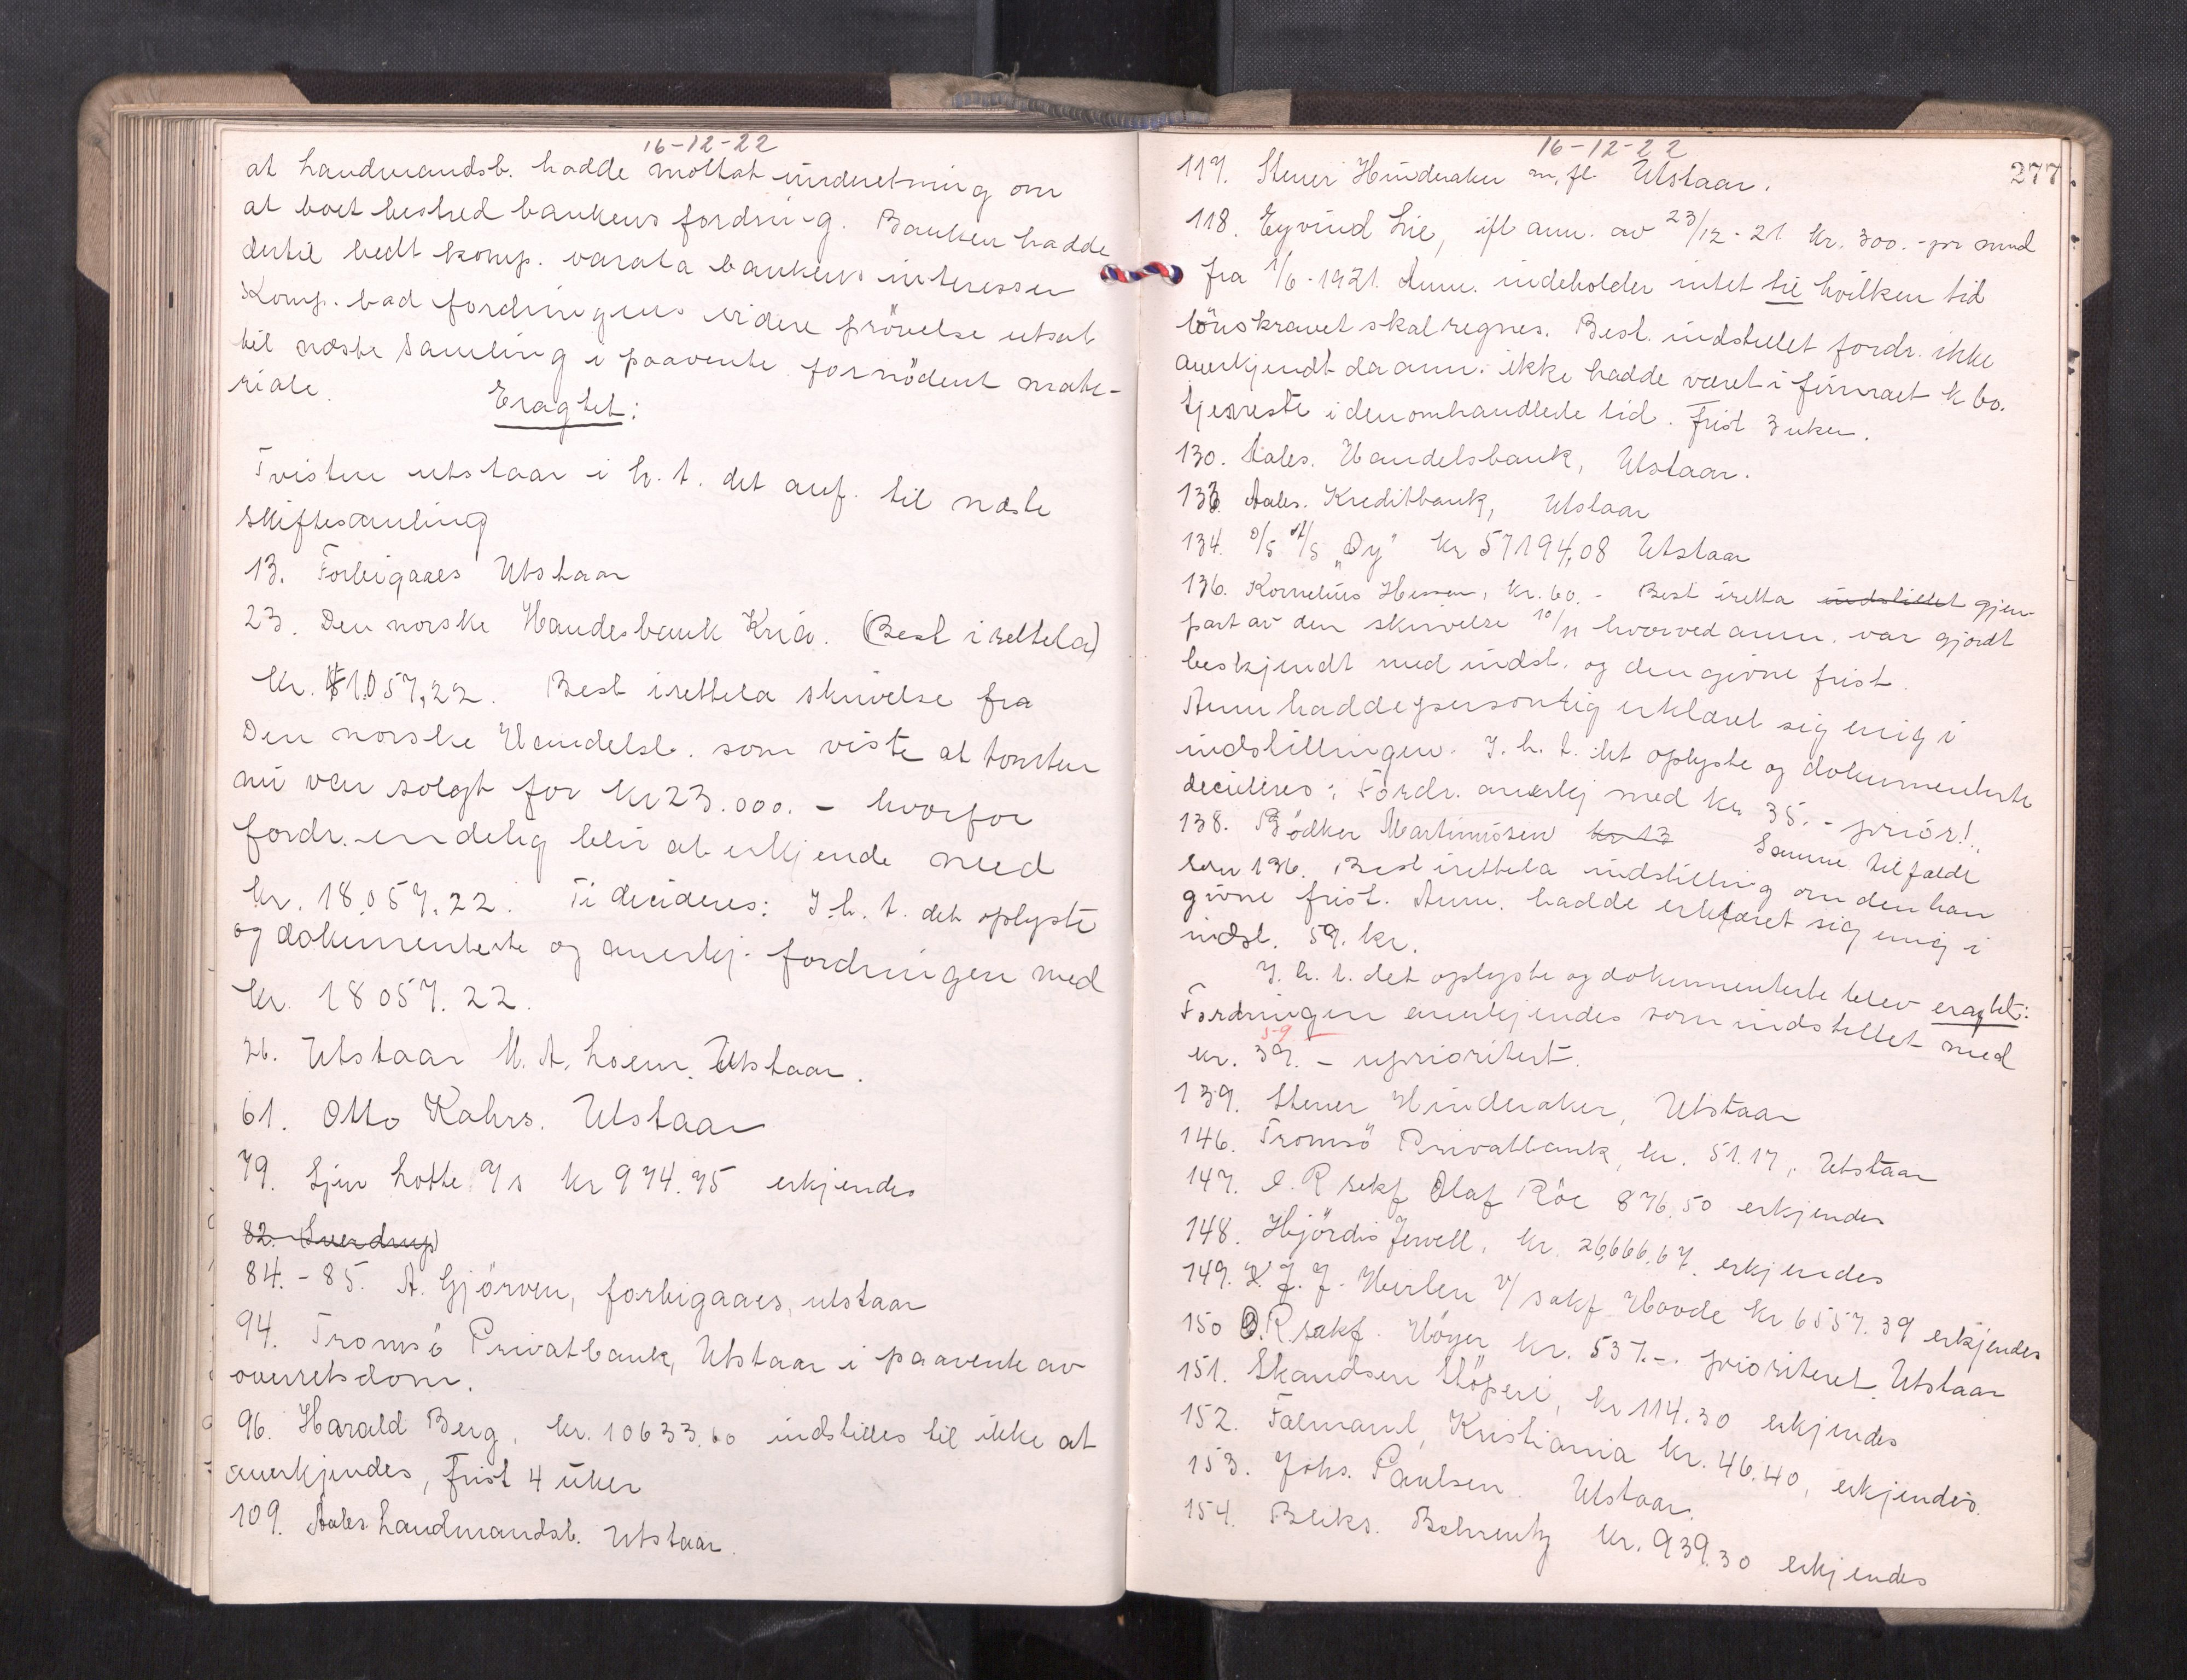 16-12-22
at Landmandsb. hadde mottat underetning om
at boet bestred bankens fordring. Banken hadde
dertil bedt komp. vareta bankens interesser
Komp. bad fordringens videre prövelse utsat
til næste samling i paavente fornödent mate-
riale.
Eragtet:
Tvisten utstaar i h. t. det anf. til næste
skiftesamling
13. Forbigaaes Utstaar
23. Den norske Handesbank Kria. (Best irettela)
kr. 81.057,22. Best irettela skrivelse fra
Den norske Handelsb. som viste at tomten
nu var solgt for kr 23.000.- hvorfor
fordr. endelig blir at erkjende med
kr. 18.057.22. Ti decideres: I. h. t. det oplyste
og dokumenterte og anerkj. fordringen med
kr. 18057.22.
26. Utstaar M. A. Loein. Utstaar.
61. Otto Kahrs. Utstaar
79. Sjur Lothe A/s kr 974.75 erkjendes
82. (Sverdrup)
84.-85. A. Gjörven, forbigaaes, utstaar
94. Tromsö Privatbank, Utstaar i paavente av
overretsdom.
96. Harald Berg, kr. 10633.60 indstilles til ikke at
anerkjendes, Frist 4 uker
109. Aales Landmandsb. Utstaar.
16-12-22
277
117. Steuer Hinderaker m. fl. Utstaar.
118. Eyvind Lie, ifl anm. av 23/12-21 kr. 300.- pr mnd
fra 1/6-1921. Anm. indeholder intet til hvilken tid
lönskravet skal regnes. Best. indstillet fordr. ikke
anerkjendt da anm. ikke hadde været i firmaet k bo.
tjeneste i den omhandlede tid. Frist 3 uker.
130. Aales. Handelsbank, Utstaar.
133. Aales. Kreditbank, Utstaar
134. D/S A/S "Oy" kr 57194,08 Utstaar
136. Kornelius Hessen, kr. 60.- Best iretta indstillet gjen-
part av den skrivelse 10/11 hvorved anm. var gjordt
beskjendt med indst. og den givne frist.
Anm hadde personlig erklæret sig enig i
indstillingen. I. h. t. det oplyste og dokumenterte
decideres: Fordr. anerkj med kr. 35.- prior!.
138. Bödker Martinusen kr 13 Samme tilfælde
som 136. Best irettela indstilling om den han
givne frist. Anm. hadde erklæret sig enig i
indst. 59. kr.
I. h. t. det oplyste og dokumenterte blev eragtet:
Fordringen anerkjendes som indstillet med
59
kr. 39.- uprioritert.
139. Steuer Hinderaker, Utstaar
146. Tromsö Privatbank, kr. 51.17, Utstaar
147. O. R sakf Olaf Röe 876.50 erkjendes
148. Hjördis Jewell, kr. 26,666.67. erkjendes
149. J. J. Herlen v/ sakf Hovde kr 6557.39 erkjendes
150 O.R.sakf. Höyer kr. 537.-. prioriteret. Utstaar
151. Skandsen Stöperi, kr 114.30 erkjendes
152. Falmand, Kristiania kr. 46.40, erkjendes.
153. Johs. Paulsen. Utstaar.
154. Bliks. Behrentz kr. 939.30 erkjendes